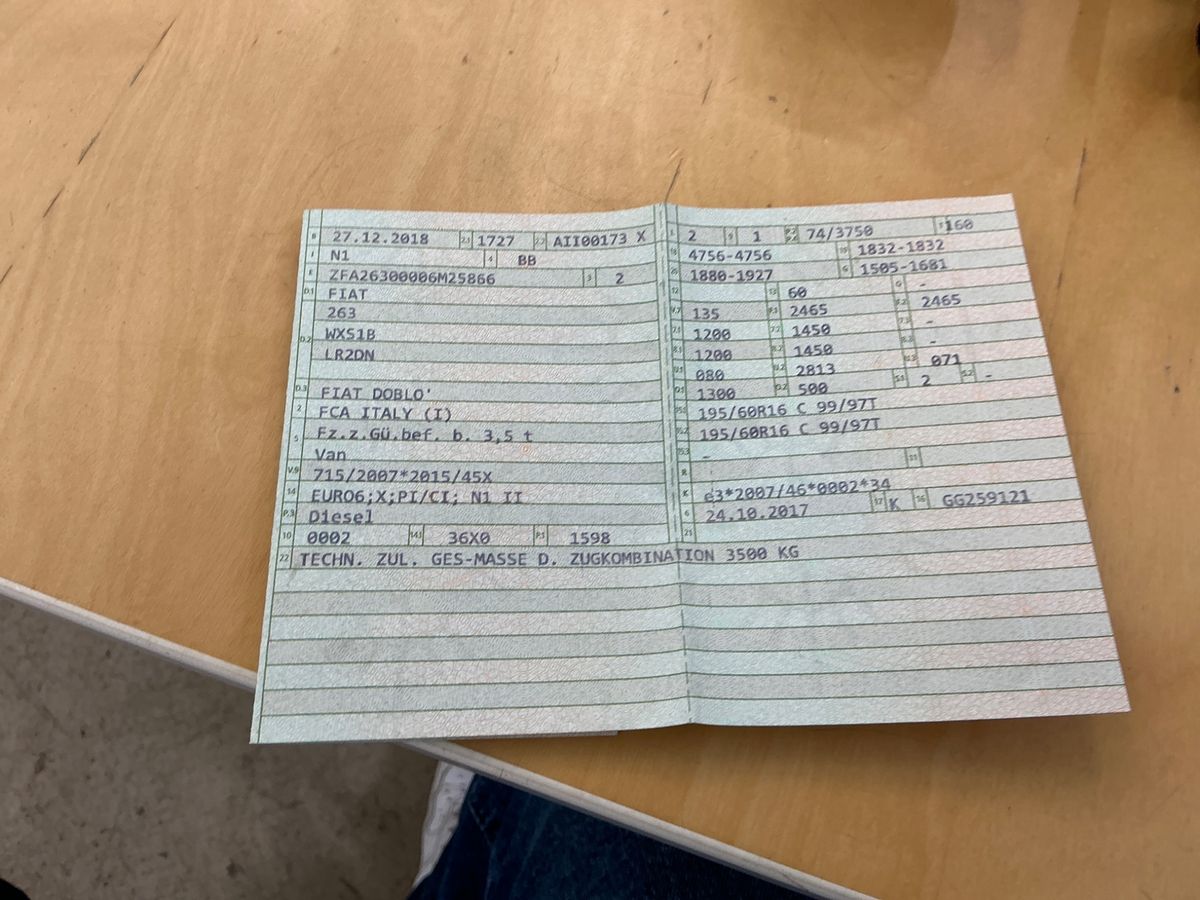 B 27.12.2018 2.1 1727 2.2 AII00173 X
J N1 4 BB
E ZFA26300006M25866 3 2
D.1 FIAT
263
D.2 WXS1B
LR2DN
D.3 FIAT DOBLO'
2 FCA ITALY (I)
5 Fz.z.Gü.bef. b. 3,5 t
Van
V.9 715/2007*2015/45X
14 EURO6;X;PI/CI; N1 II
P.3 Diesel
10 0002 14.1 36X0 P.1 1598
22 TECHN. ZUL. GES-MASSE D. ZUGKOMBINATION 3500 KG
L 2 9 1 P.2 P.4 74/3750 T 160
18 4756-4756 19 1832-1832
20 1880-1927 G 1505-1681
12 13 60 Q -
V.7 135 F.1 2465 F.2 2465
7.1 1200 7.2 1450 7.3 -
8.1 1200 8.2 1450 8.3 -
U.1 080 U.2 2813 U.3 071
O.1 1300 O.2 500 S.1 2 S.2 -
15.1 195/60R16 C 99/97T
15.2 195/60R16 C 99/97T
15.3 -
R 11
K e3*2007/46*0002*34
6 24.10.2017 17 K 16 GG259121
21